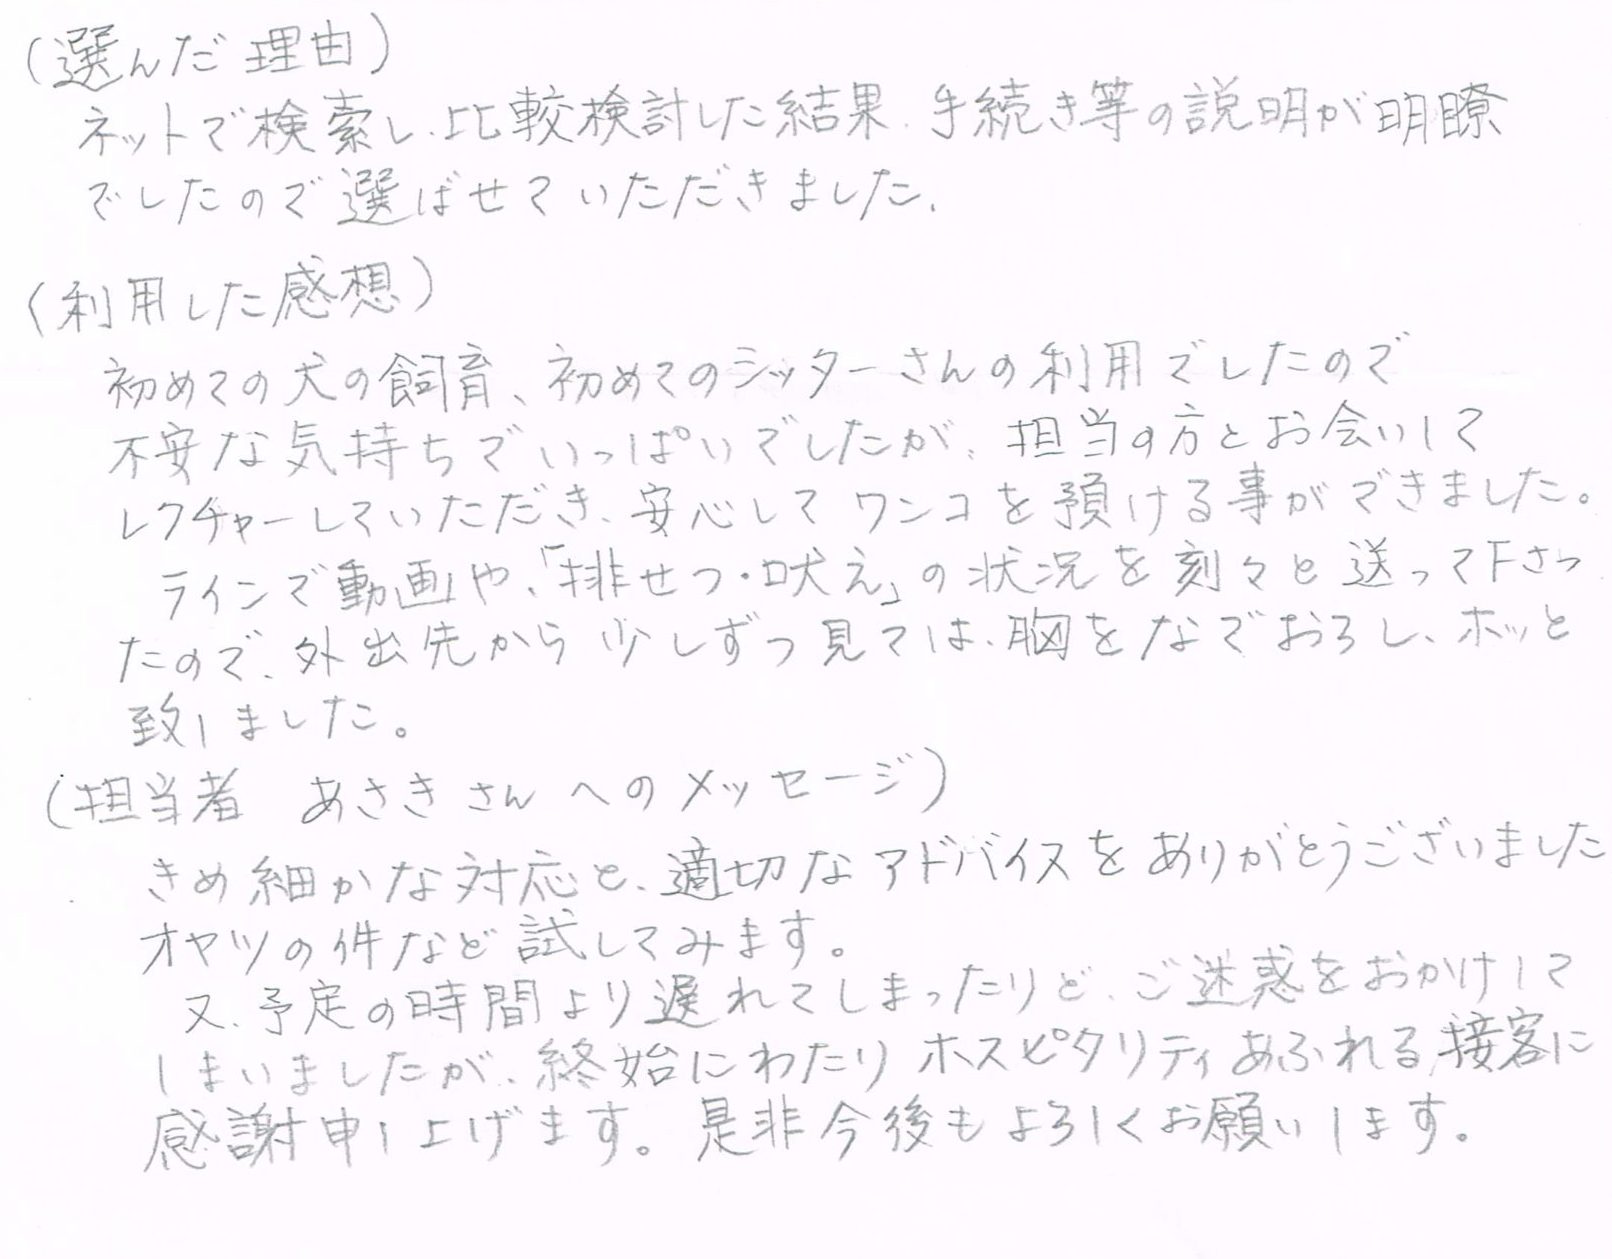 (選んだ理由)
ネットで検索し、比較検討した結果、手続き等の説明が明瞭
でしたので選ばせていただきました。
(利用した感想)
初めての犬の飼育、初めてのシッターさんの利用でしたので
不安な気持ちでいっぱいでしたが、担当の方とお会いして
レクチャーしていただき、安心してワンコを預ける事ができました。
ラインで動画や、「排せつ・吠え」の状況を刻々と送って下さっ
たので、外出先から少しずつ見ては、胸をなでおろし、ホッと
致しました。
(担当者 あさきさんへのメッセージ)
きめ細かな対応と、適切なアドバイスをありがとうございました
オヤツの件など試してみます。
又、予定の時間より遅れてしまったりど、ご迷惑をおかけして
しまいましたが、終始にわたりホスピタリティあふれる接客に
感謝申し上げます。是非今後もよろしくお願いします。